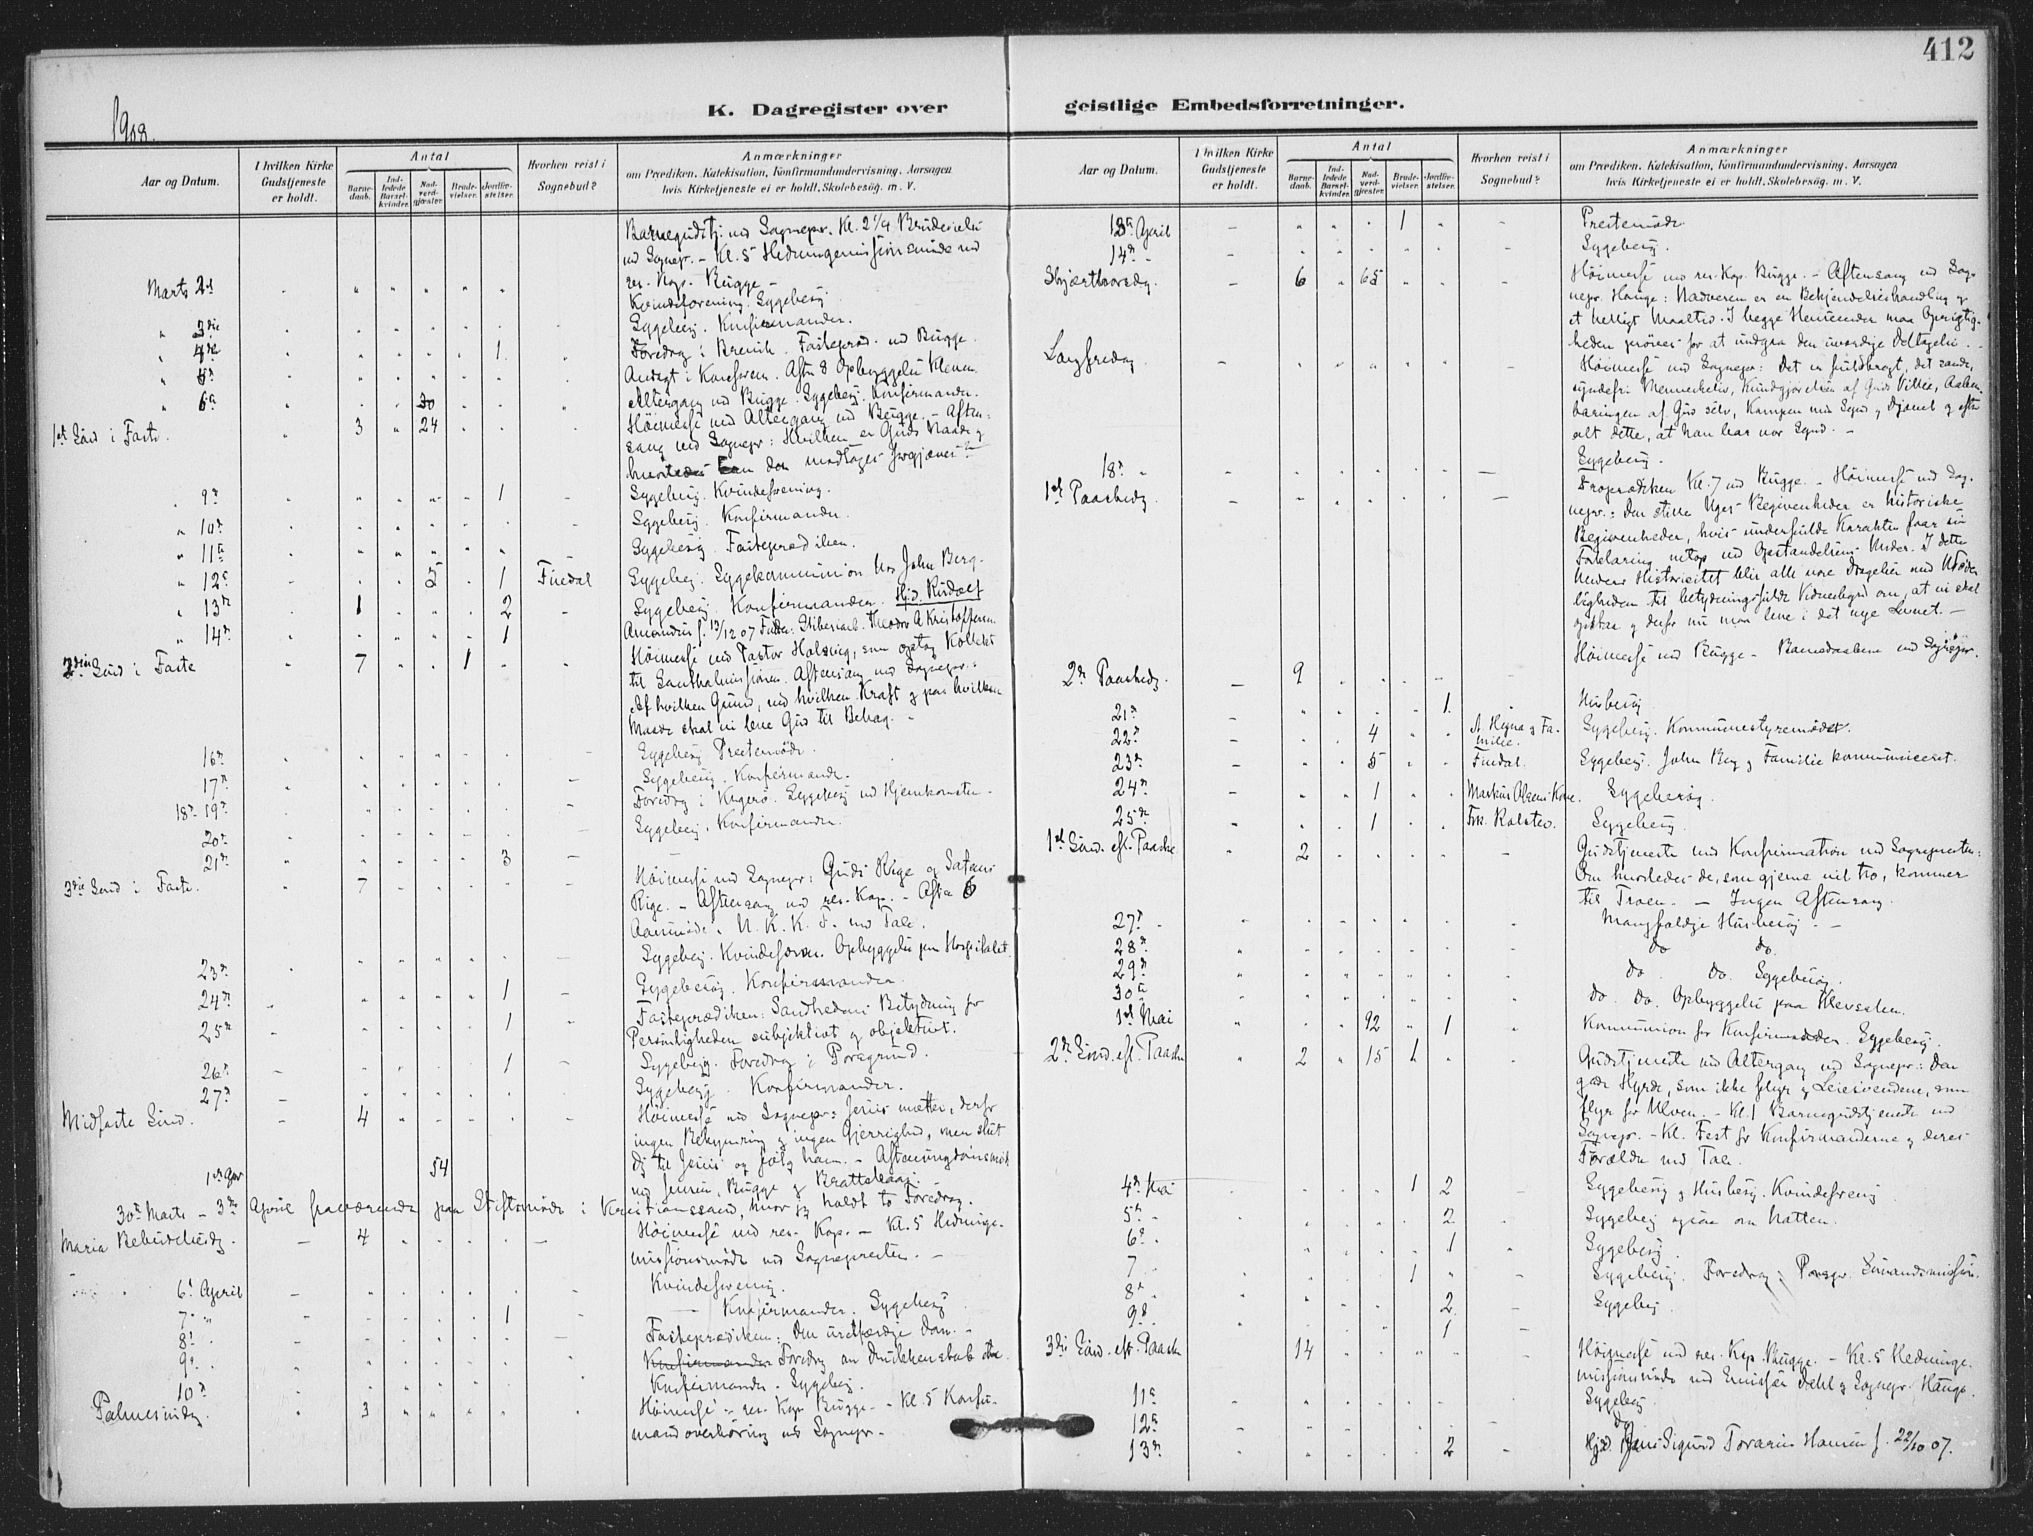 412
K. Dagregister over geistlige Embedsforretninger.
1908.
Aar og Datum.
I hvilken Kirke Gudstjeneste er holdt.
Antal
Barne-daab.
Ind-ledede Barsel-kvinder.
Nad-verd-gjester.
Brude-vielser.
Jordfæ-stelser.
Hvorhen reist i Sognebud?
Anmærkninger
om Prædiken, Katekisation, Konfirmandundervisning, Aarsagen
hvis Kirketjeneste ei er holdt, Skolebesøg, m. V.
Barnegudstj. ved Sognepr. Kl. 2 1/4 Brudevielse
ved Sognepr. – Kl. 5 Hedningemissionsmøde ved
res. Kap. Bugge –
Marts 2d Kvindeforening. Sygebesøg
3die Sygebesøg. Konfirmander.
4de 1 Foredrag i Brevik. Fastepræd. ved Bugge.
5te Andagt i Konfforen. Aften 8 Opbyggelse
6te 30 Altergang ved Bugge. Sygebesøg. Konfirmander.
1ste Sønd i Faste. 3 24 Høimesse med Altergang ved Bugge. – Aften-
sang ved Sognepr: Hvilken er Guds Naade og
kan den modtages forgjæves?
9de 1 Sygebesøg. Kvindeforening.
10de Sygebesøg. Konfirmander.
11te Sygebesøg. Fasteprædiken.
12te 5 1 Fredal Sygebesøg. Sygekommunion hos John Berg.
13de 1 2 Sygebesøg. Konfirmander. Hjd. Rudolf
14de 1 Amandus f. 13/12 07 Theodor A Kristoffersen
2den Sønd i Faste 7 1 Høimesse ved Pastor Halvorg, som optog Kollekt
til Santhalmissionen. Aftensang ved Sognepr.:
Af hvilken Grund, ved hvilken Kraft og paa hvilken
Maade skal vi leve Gud til Behag. –
16de Sygebesøg Prestemøde.
17de Sygebesøg. Konfirmander.
18de 19de Foredrag i Kragerø. Sygebesøg ved Hjemkomsten.
20de Sygebesøg. Konfirmander.
21de 3
3die Sønd i Faste. 7 Høimesse ved Sognepr: Guds Rige og Satans
Rige. – Aftensang ved res. Kap. – Aften 6
Aarsmøde i U. K. K. F. med Tale.
23de Sygebesøg. Kvindeforen. Opbyggelse paa Hospitalet.
24de 1 Sygebesøg. Konfirmander.
25de 1 Fasteprædiken: Sandhedens Betydning for
Personligheden subjektivt og objektivt.
26de 1 Sygebesøg. Foredrag i Porsgrund.
27de Sygebesøg. Konfirmander.
Midfaste Sønd. 4 Høimesse ved Sognepr: Jesus mætter, derfor
ingen Bekymring og ingen Gjerrighed, men slut
dig til Jesus og følg ham. – Aftenungdomsmøde
1ste Apr 54 ved Jensen, Bugge og Bratteteig.
30te Marts – 3die April fraværende paa Stiftsmøde i Kristianssand, hvor jeg holdt to Foredrag.
Maria Bebudelsesdag. 4 Høimesse ved res. Kap. – Kl. 5 Hedninge-
missionsmøde ved Sognepresten. –
6te April Kvindeforening.
7de 1 Konfirmander. Sygebesøg
8de Fasteprædiken: Den uretfærdige Dom. –
9de Konfirmander Foredrag om Drukkenskab
10de Konfirmander. Sygebesøg.
Palmesøndag. 3 Høimesse – res. Kap Bugge – Kl. 5 Konfir-
mandoverhøring ved Sognepr. –
Aar og Datum.
I hvilken Kirke Gudstjeneste er holdt.
Antal
Barne-daab.
Ind-ledede Barsel-kvinder.
Nad-verd-gjester.
Brude-vielser.
Jordfæ-stelser.
Hvorhen reist i Sognebud?
Anmærkninger
om Prædiken, Katekisation, Konfirmandundervisning, Aarsagen
hvis Kirketjeneste ei er holdt, Skolebesøg, m. V.
13de April 1 Prestemøde
14de Sygebesøg.
Skjærthorsdag. 6 65 Høimesse ved res. Kap. Bugge. – Aftensang ved Sog-
nepr. Hauge: Nadveren er en Bekjendelseshandling og
et helligt Maaltid. I begge Henseender maa Oprigtig-
heden prøves for at undgaa den uværdige Deltagelse. –
Langfredag Høimesse ved Sognepr: Det er fuldbragt, det sande,
syndefri Menneskeliv, Kundgjørelsen af Guds Villie, Aaben-
baringen af Gud selv, Kampen mod Synd og Djævel og efter
alt dette, at han bar vor Synd. –
18de Sygebesøg.
1ste Paaskedag. Froprædiken Kl. 7 ved Bugge. – Høimesse ved Sog-
nepr.: Den stille Uges Begivenheder er historiske
Begivenheder, hvis underfulde Karakter faar sin
Forklaring netop ved Opstandelsens Under. I dette
Unders Historicitet blir alle vore med
til betydningsfulde Vidnesbyrd om, at vi skal
opstaa og derfor nu maa leve i det nye Levnet. –
2den Paaskedag. 9 Høimesse ved Bugge – Barnedaabene ved Sognepr.
21de 1 Husbesøg.
22de 4 A. Hegna og Fa-milie. Sygebesøg. Kommunestyremøde.
23de 5 Fredal. Sygebesøg. John Berg og Familie kommuniceret.
24de 1 Markus Olsens Kone. Sygebesøg.
25de 1 Frk. Ralsted. Sygebesøg.
1ste Sønd. eft. Paaske 2 Gudstjeneste med Konfirmation ved Sognepresten:
Om hvorledes de, som gjerne vil tro, kommer
til Troen. – Ingen Aftensang.
27de Mangfoldige Husbesøg. –
28de do do.
29de do. do. Sygebesøg.
30te do do. Opbyggelse paa Klevsalen.
1ste Mai 92 1 Kommunion for Konfirmander. Sygebesøg.
2den Sønd. eft. Paaske 2 15 1 Gudstjeneste med Altergang ved Sognepr: Den
gode Hyrde, som ikke flyr og Leiesvendene, som
flyr for Ulven. – Kl. 1 Barnegudstjeneste ved
Sognepr. – Kl. Fest for Konfirmanderne og deres
Forældre med Tale.
4de Mai 1 2 Sygebesøg og Husbesøg. Kvindeforening
5te 2 Sygebesøg ogsaa om Natten.
6te 1 Sygebesøg.
7 1 Sygebesøg. Foredrag i Porsgr. Sømandsmission.
8de 2 Sygebesøg
9de 1
3die Sønd. eft. Paaske 14 Høimesse ved res. Kap. Bugge. – Kl. 5 Hedninge-
missionsmøde ved Emissær Dahl og Sognepr. Hauge.
11te Sygebesøg
12te do
13de 2 Hjd. Jens Sigurd Toralv Hansen f. 22/10 07.